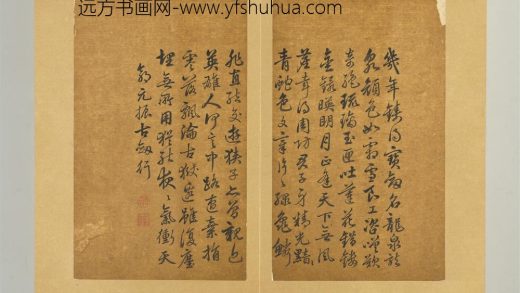 远方书画网-www.yfshuhua.com
幾年鑄得寶劍名龍泉龍
泉顏色如霜雪良工咨嗟歎
奇絕琉璃玉匣吐蓮花錯鏤
金鐶暎明月正逢天下無風
塵幸得周防君子身精光黯〻
青蛇色文章片〻綠龜鱗
非直結交遊俠子亦曾親近
英雄人何言中路遭棄捐
零落飄淪古獄邊雖復塵
埋無所用猶能夜〻氣衝天
郭元振古劍行